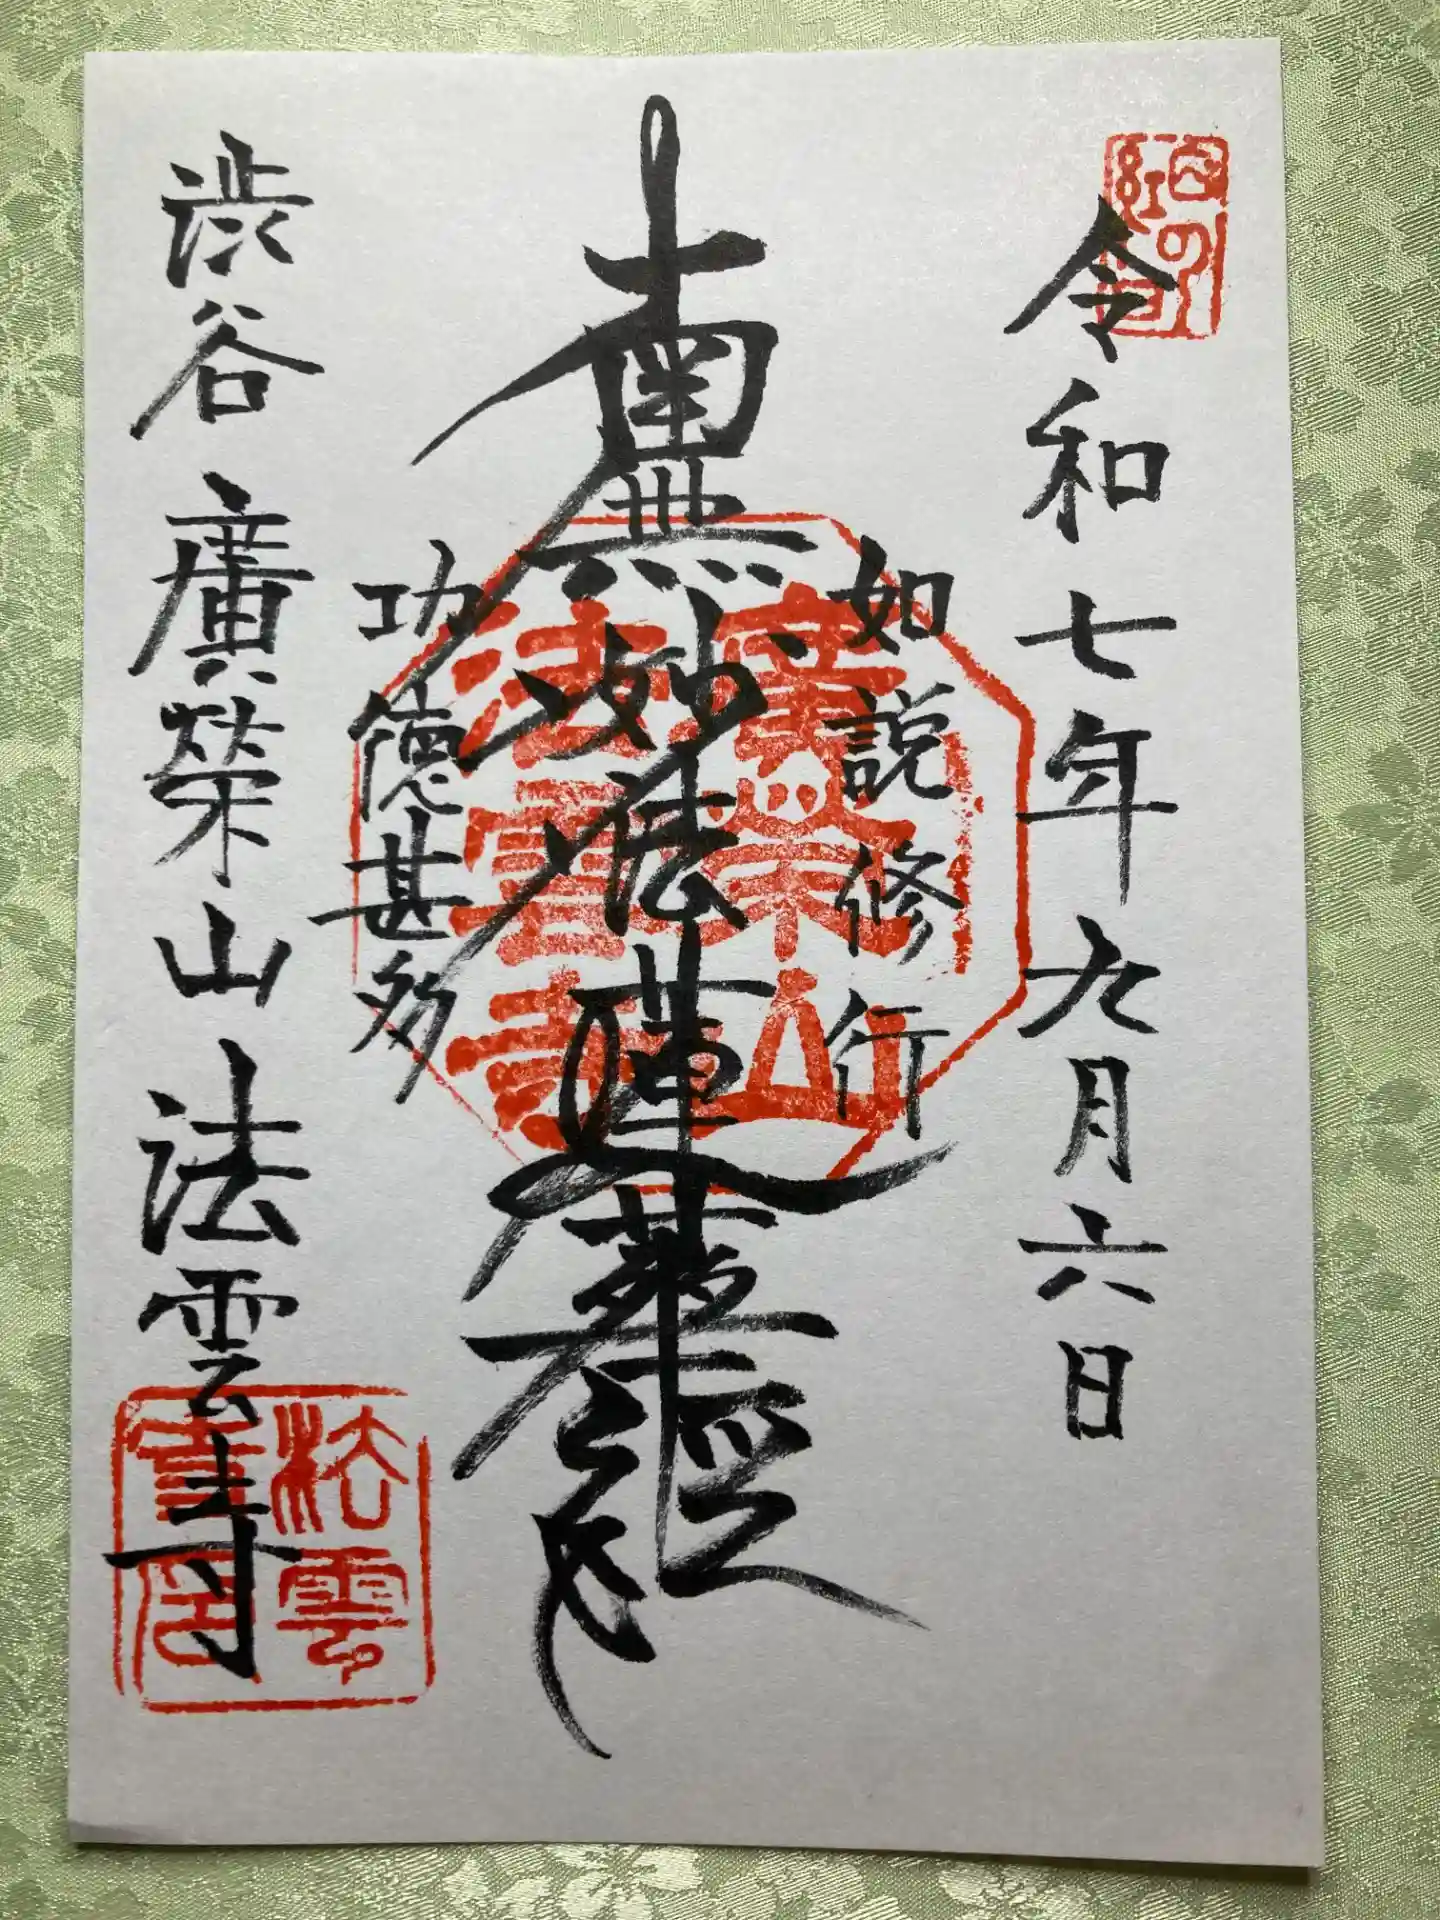 令和七年九月六日
如説修行
南無妙法蓮華経
功德甚多
渋谷 廣榮山 法雲寺
廣栄山
法雲寺
法雲